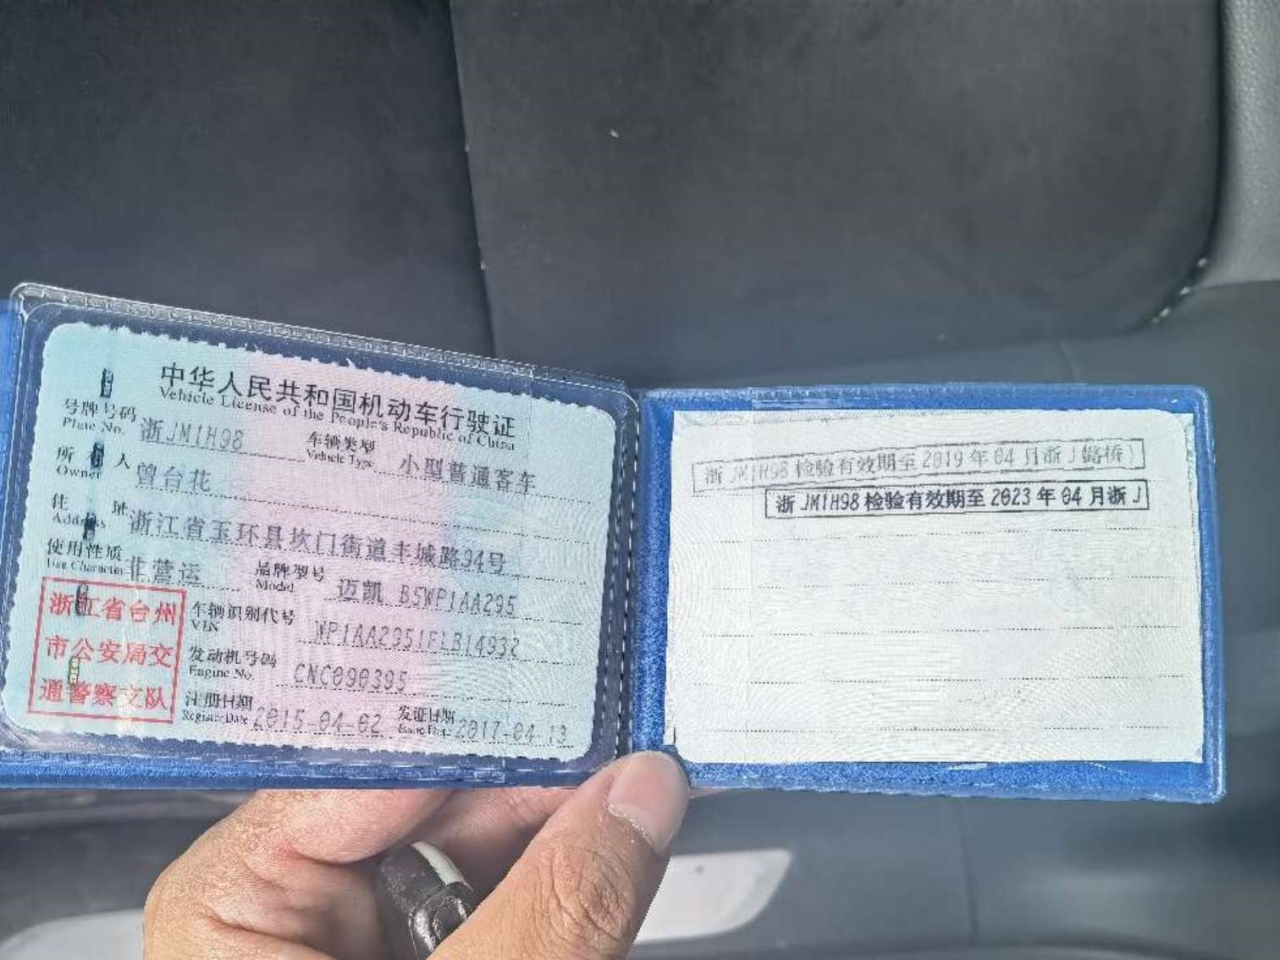 中华人民共和国机动车行驶证
Vehicle License of the People's Republic of China
号牌号码 浙JM1H98 车辆类型 小型普通客车
Plate No. Vehicle Type
所有人 曾台花
Owner
住址 浙江省玉环县坎门街道丰城路94号
Address
使用性质 非营运 品牌型号 迈凯 B5WP1AA295
Use Character Model
浙江省台州
市公安局交
通警察支队
车辆识别代号 WP1AA2951FLB14932
VIN
发动机号码 CNC090395
Engine No.
注册日期 2015-04-02 发证日期 2017-04-13
Register Date Issue Date
浙JM1H98检验有效期至2019年04月浙J(路桥)
浙JM1H98检验有效期至2023年04月浙J